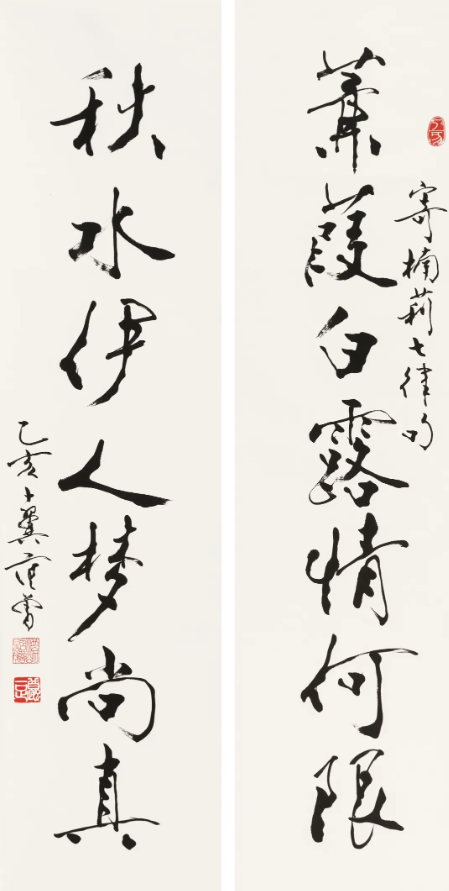 蒹葭白露情何限
寄楠莉七律句
秋水伊人梦尚真
乙亥十翼范曾